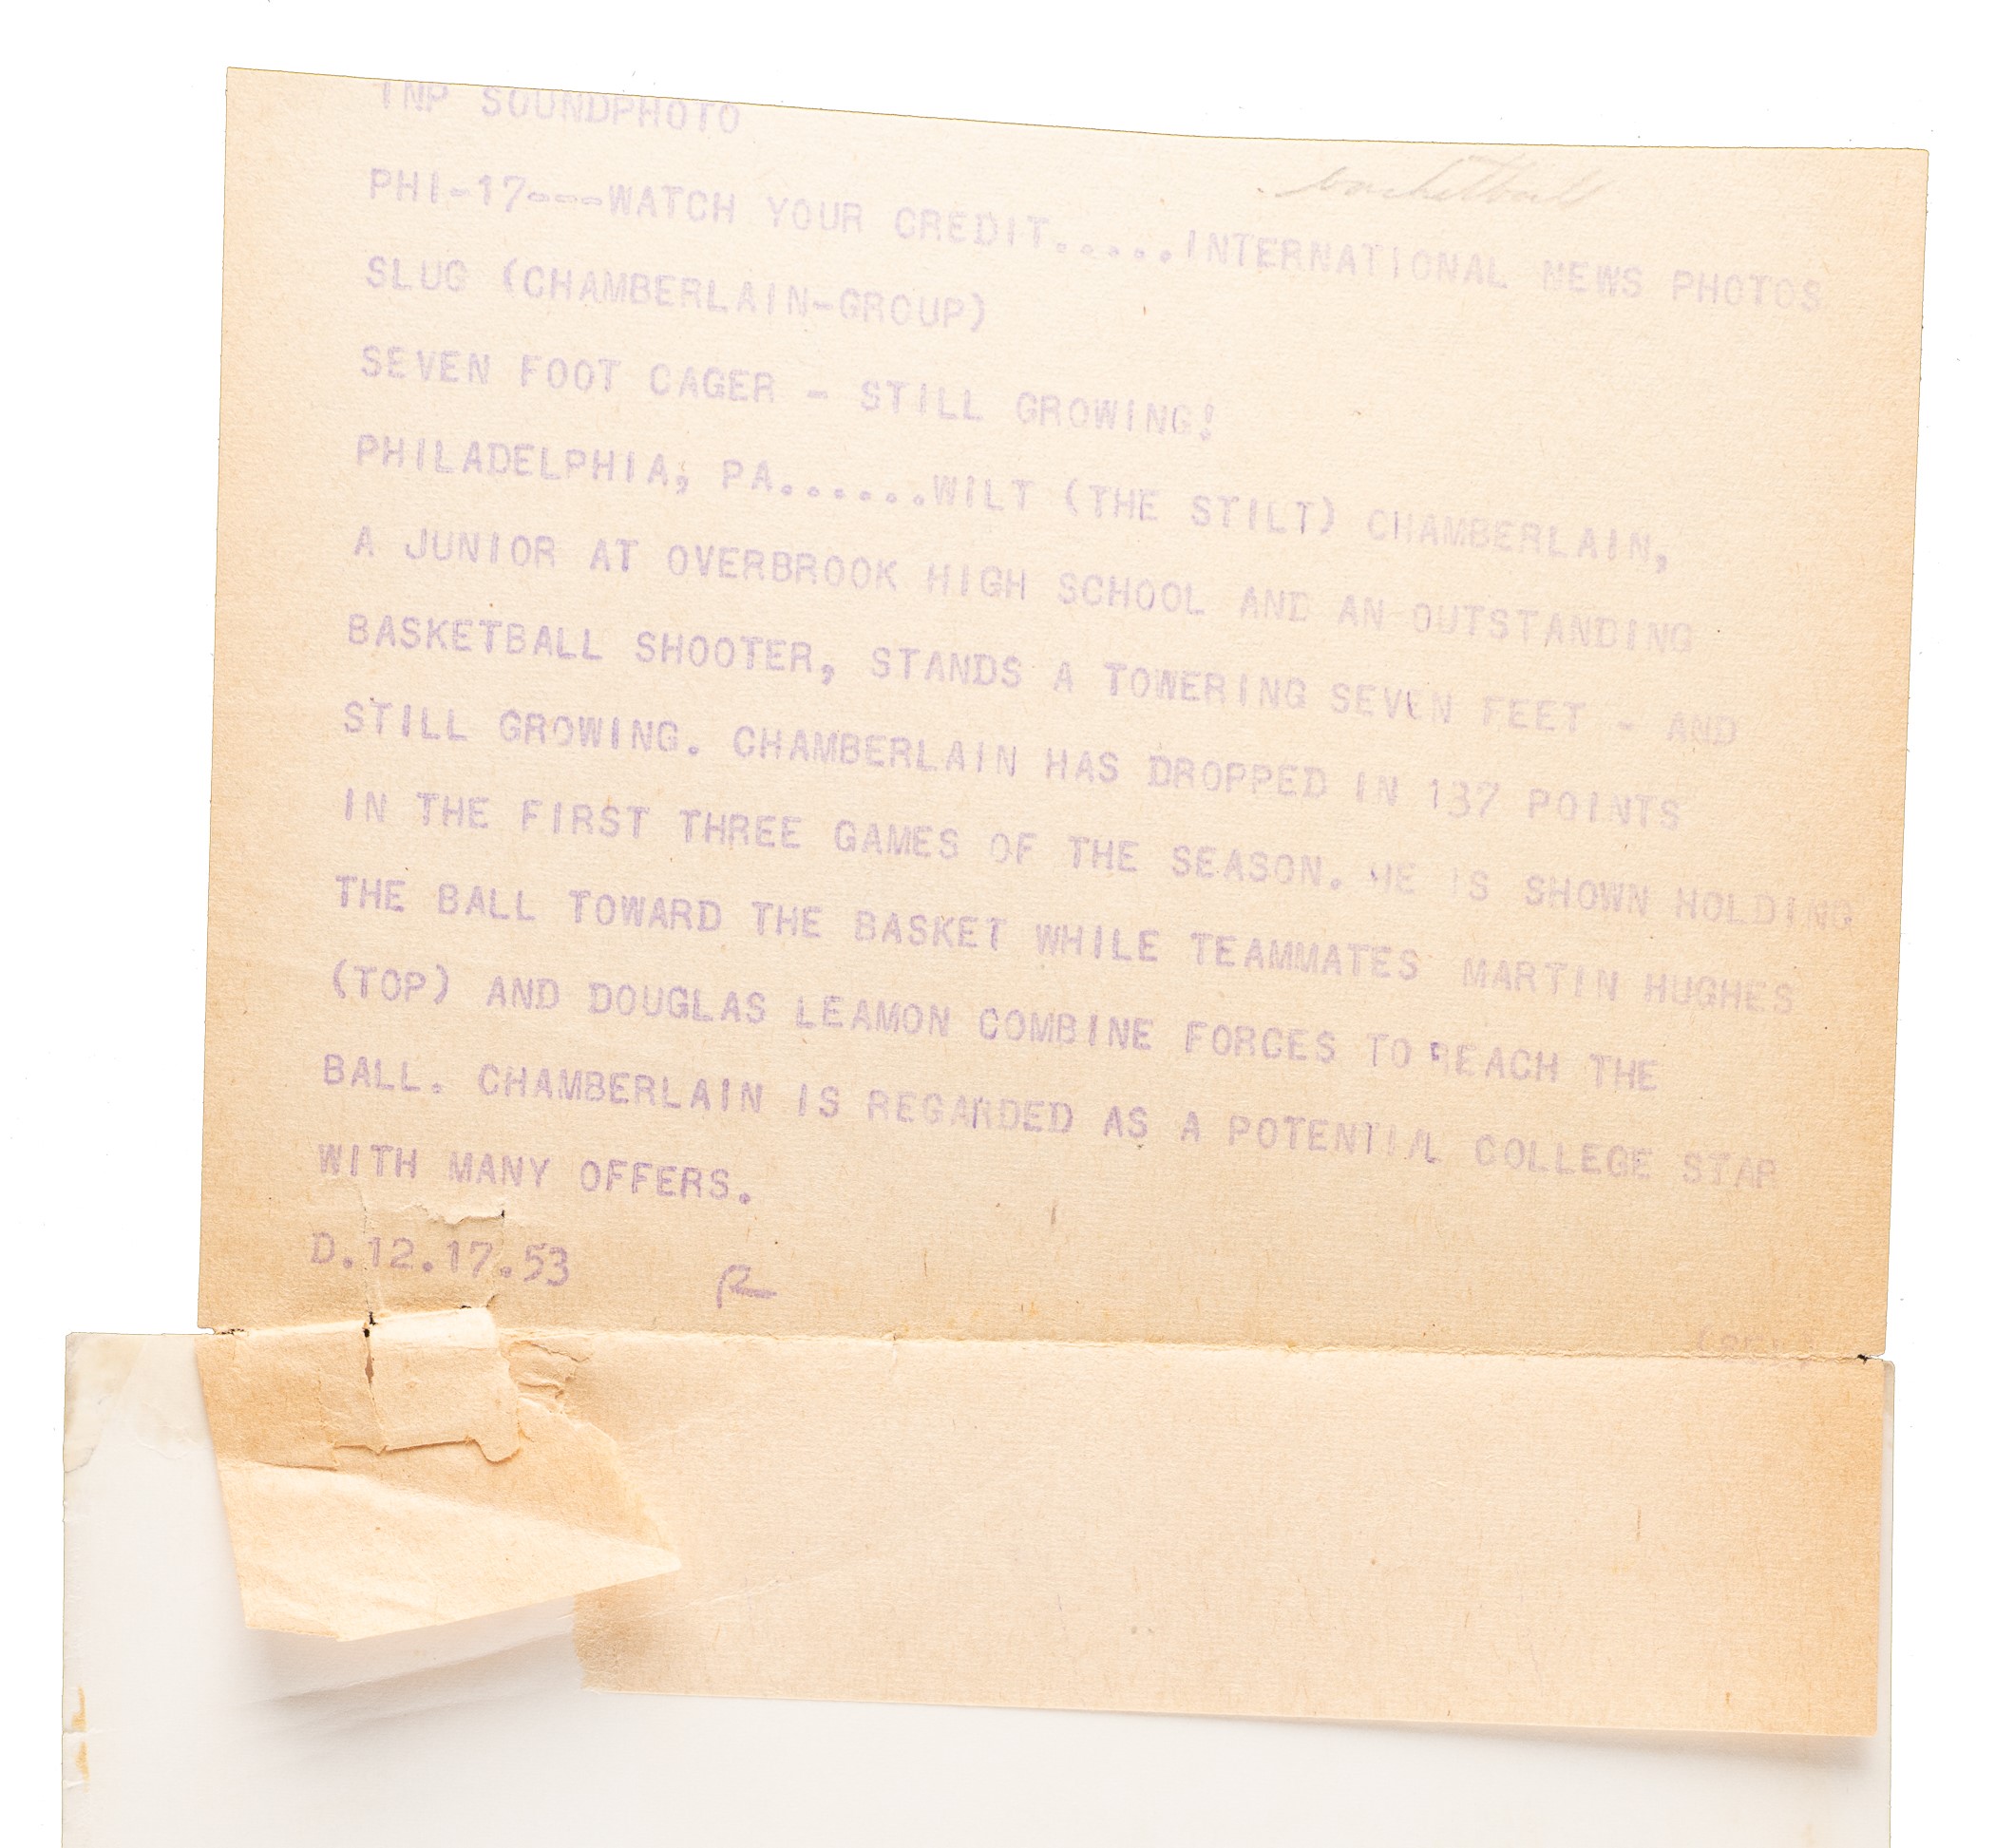 INP SOUNDPHOTO
basketball
PHI-17---WATCH YOUR CREDIT.....INTERNATIONAL NEWS PHOTOS
SLUG (CHAMBERLAIN-GROUP)
SEVEN FOOT CAGER - STILL GROWING!
PHILADELPHIA, PA......WILT (THE STILT) CHAMBERLAIN,
A JUNIOR AT OVERBROOK HIGH SCHOOL AND AN OUTSTANDING
BASKETBALL SHOOTER, STANDS A TOWERING SEVEN FEET - AND
STILL GROWING. CHAMBERLAIN HAS DROPPED IN 137 POINTS
IN THE FIRST THREE GAMES OF THE SEASON. HE IS SHOWN HOLDING
THE BALL TOWARD THE BASKET WHILE TEAMMATES MARTIN HUGHES
(TOP) AND DOUGLAS LEAMON COMBINE FORCES TO REACH THE
BALL. CHAMBERLAIN IS REGARDED AS A POTENTIAL COLLEGE STAR
WITH MANY OFFERS.
D.12.17.53